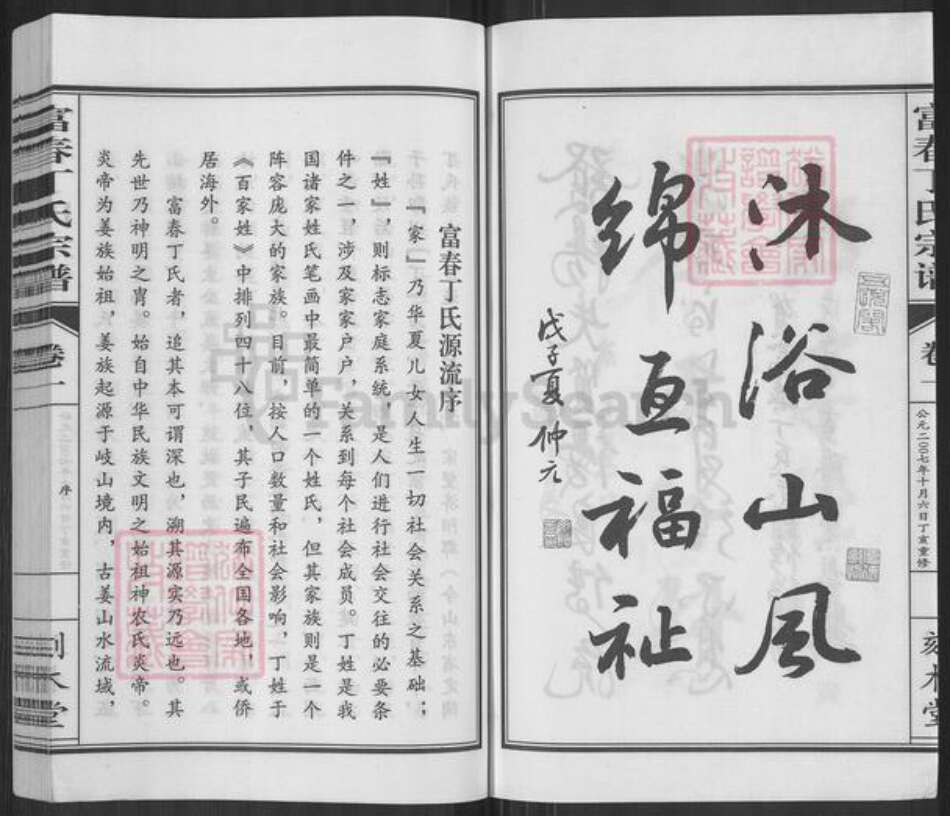 沐浴山风
绵亘福祉
戊子夏 仲元
富春丁氏宗谱
卷一
公元二〇〇七年十月六日丁亥重修
刻木堂
富春丁氏源流序
「家」乃华夏儿女人生一切社会关系之基础；
「姓」，则标志家庭系统，是人们进行社会交往的必要条
件之一，涉及家家户户，关系到每个社会成员。丁姓是我
国诸家姓氏笔画中最简单的一个姓氏，但其家族则是一个
阵容庞大的家族。目前，按人口数量和社会影响，丁姓于
《百家姓》中排列四十八位，其子民遍布全国各地，或侨
居海外。
富春丁氏者，追其本可谓深也，溯其源实乃远也。其
先世乃神明之胄。始自中华民族文明之始祖神农氏炎帝。
炎帝为姜族始祖，姜族起源于岐山境内，古姜山水流域，
富春丁氏宗谱
卷一
序
刻木堂
FamilySearch